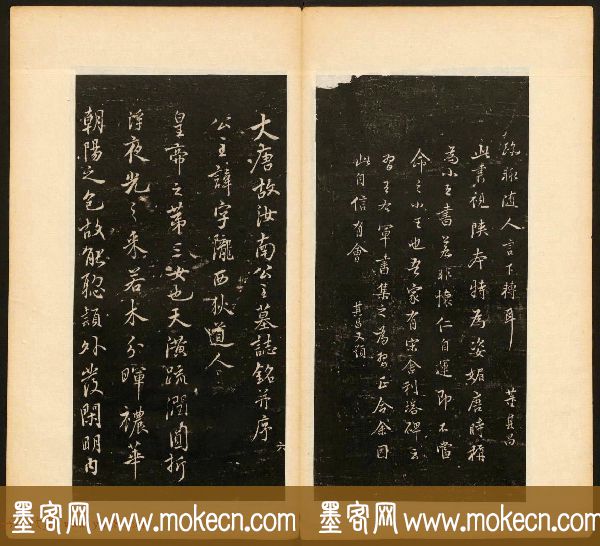 疏聊随人言下轉耳 董其昌
此書視陕本特為姿媚唐時稱
為小王書若非懷仁自運即不當
命之小王也吾家有宋舍利塔碑云
習王右軍書集之為習正合余因
此自信有會 其昌又題
大唐故汝南公主墓誌銘并序
公主諱字隴西狄道人
皇帝之第三女也天潢疏潤圓折
浮夜光之采若木分暉穠華
朝陽之色故能聰穎外發閑明内
六
墨客网 www.mokecn.com
墨客网 www.mokecn.com